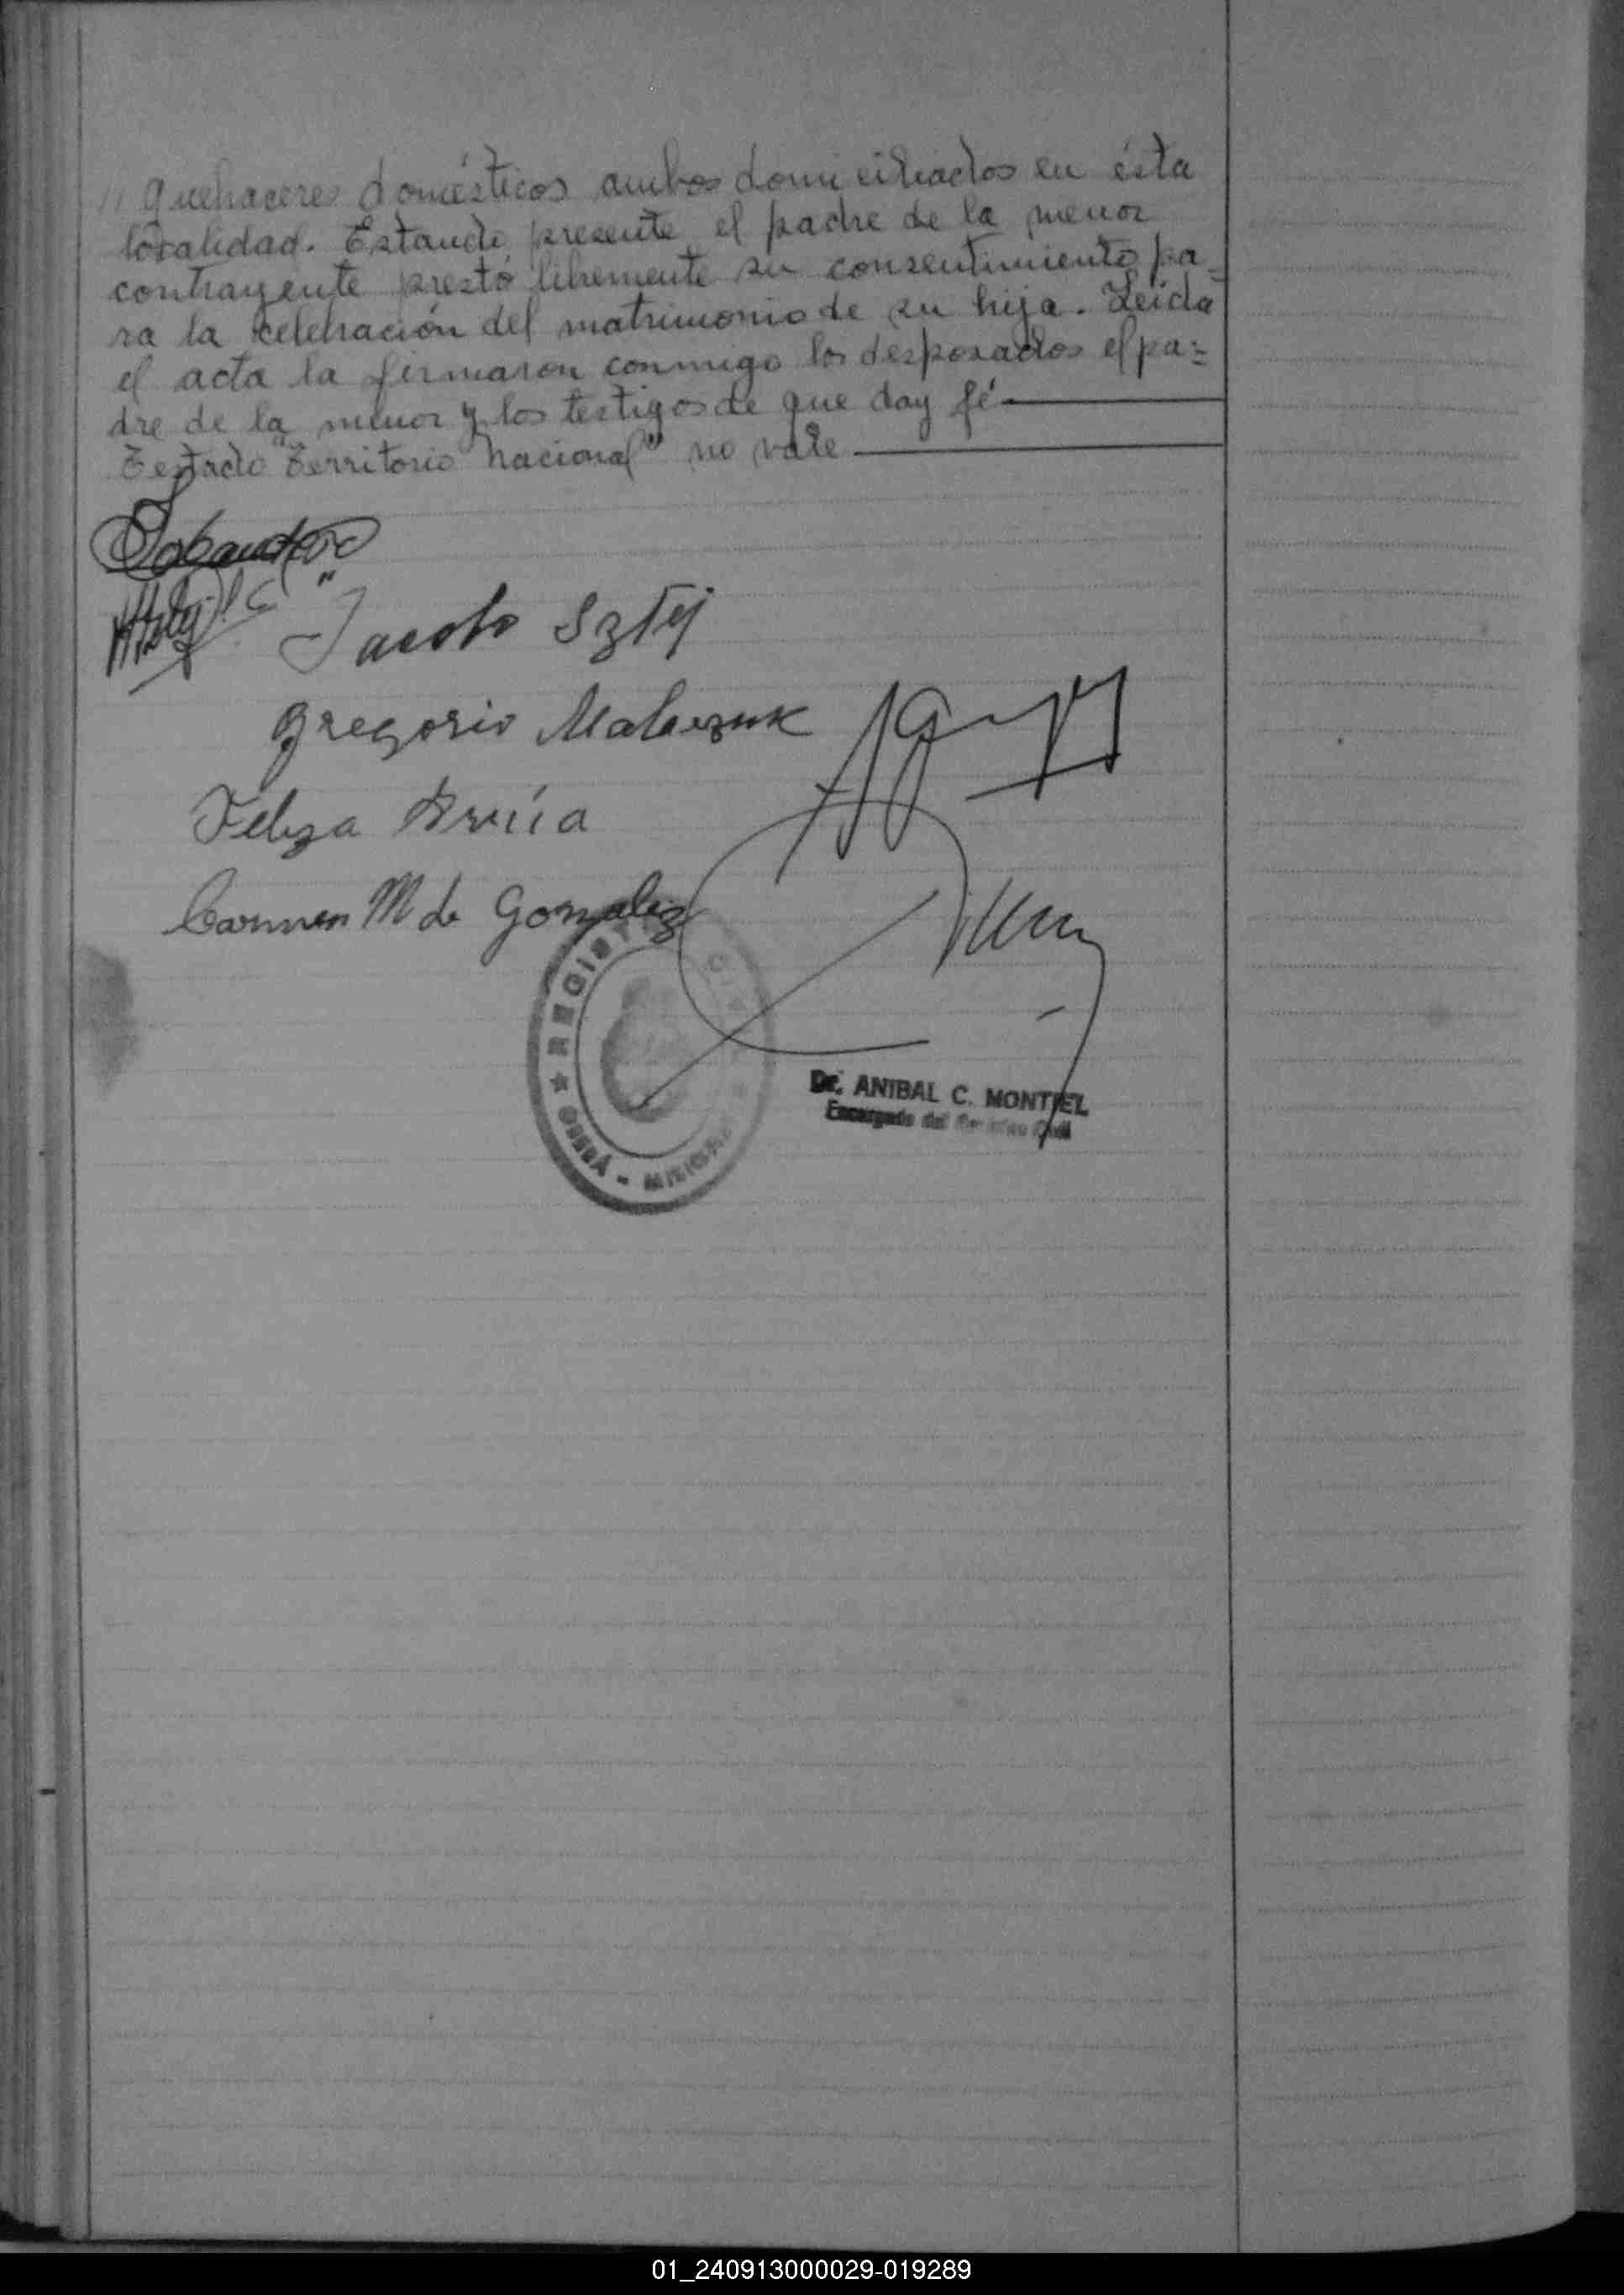 // quehaceres domésticos ambos domiciliados en ésta
localidad. Estando presente el padre de la menor
contrayente prestó libremente su consentimiento pa=
ra la celebración del matrimonio de su hija. Leida
el acta la firmaron conmigo los desposados el pa=
dre de la menor y los testigos de que doy fé
Testado "Territorio Nacional" no vale
Jacobo Sztej
Gregorio
Feliza
Carmen M de Gonzalez
REGISTRO CIVIL
OBERÁ - MISIONES
Dr. ANIBAL C. MONTIEL
Encargado del Registro Civil
01_240913000029-019289